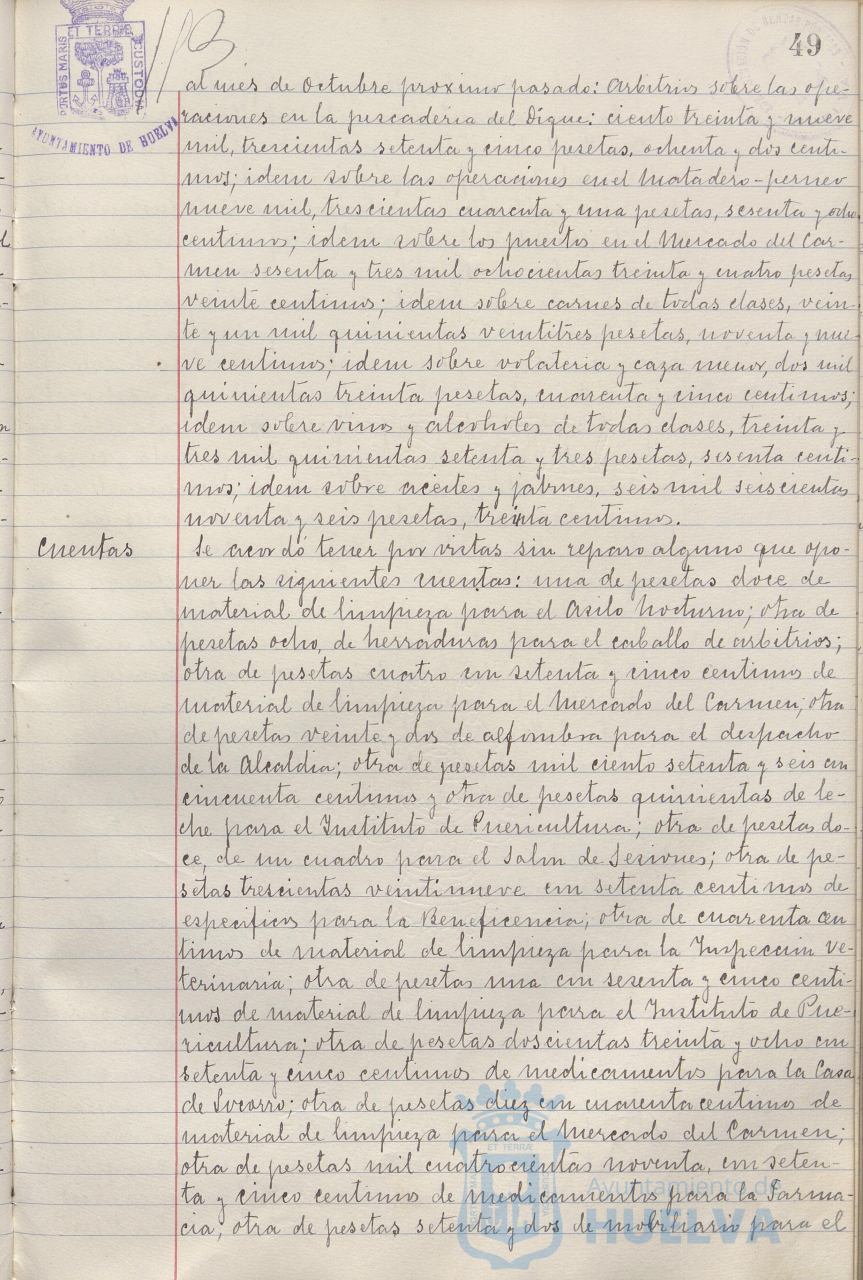 PORTUS MARIS ET TERRÆ CUSTODIA
AYUNTAMIENTO DE HUELVA
49
al mes de Octubre proximo pasado: arbitrios sobre las ope-
raciones en la pescaderia del Dique: ciento treinta y nueve
mil, trescientas setenta y cinco pesetas, ochenta y dos centi-
mos; idem sobre las operaciones en el Matadero-perneo
nueve mil, trescientas cuarenta y una pesetas, sesenta y ocho
centimos; idem sobre los puestos en el Mercado del Car-
men sesenta y tres mil ochocientas treinta y cuatro pesetas
veinte centimos; idem sobre carnes de todas clases, vein-
te y un mil quinientas veintitres pesetas, noventa y nue-
ve centimos; idem sobre volateria y caza menor, dos mil
quinientas treinta pesetas, cuarenta y cinco centimos;
idem sobre vinos y alcoholes de todas clases, treinta y
tres mil quinientas setenta y tres pesetas, sesenta centi-
mos; idem sobre aceites y jabones, seis mil seiscientas
noventa y seis pesetas, treinta centimos.
Cuentas
Se acordó tener por vistas sin reparo alguno que opo-
ner las siguientes cuentas: una de pesetas doce de
material de limpieza para el Asilo Nocturno; otra de
pesetas ocho, de herraduras para el caballo de arbitrios;
otra de pesetas cuatro con setenta y cinco centimos de
material de limpieza para el Mercado del Carmen; otra
de pesetas veinte y dos de alfombra para el despacho
de la Alcaldia; otra de pesetas mil ciento setenta y seis con
cincuenta centimos y otra de pesetas quinientas de le-
che para el Instituto de Puericultura; otra de pesetas do-
ce, de un cuadro para el Salon de Sesiones; otra de pe-
setas trescientas veintinueve con setenta centimos de
especificos para la Beneficencia; otra de cuarenta cen
timos de material de limpieza para la Inspeccion Ve-
terinaria; otra de pesetas una con sesenta y cinco centi-
mos de material de limpieza para el Instituto de Pue-
ricultura; otra de pesetas doscientas treinta y ocho con
setenta y cinco centimos de medicamentos para la Casa
de Socorro; otra de pesetas diez con cuarenta centimos de
material de limpieza para el Mercado del Carmen;
otra de pesetas mil cuatrocientas noventa, con seten-
ta y cinco centimos de medicamentos para la Farma-
cia; otra de pesetas setenta y dos de mobiliario para el
Ayuntamiento de
HUELVA